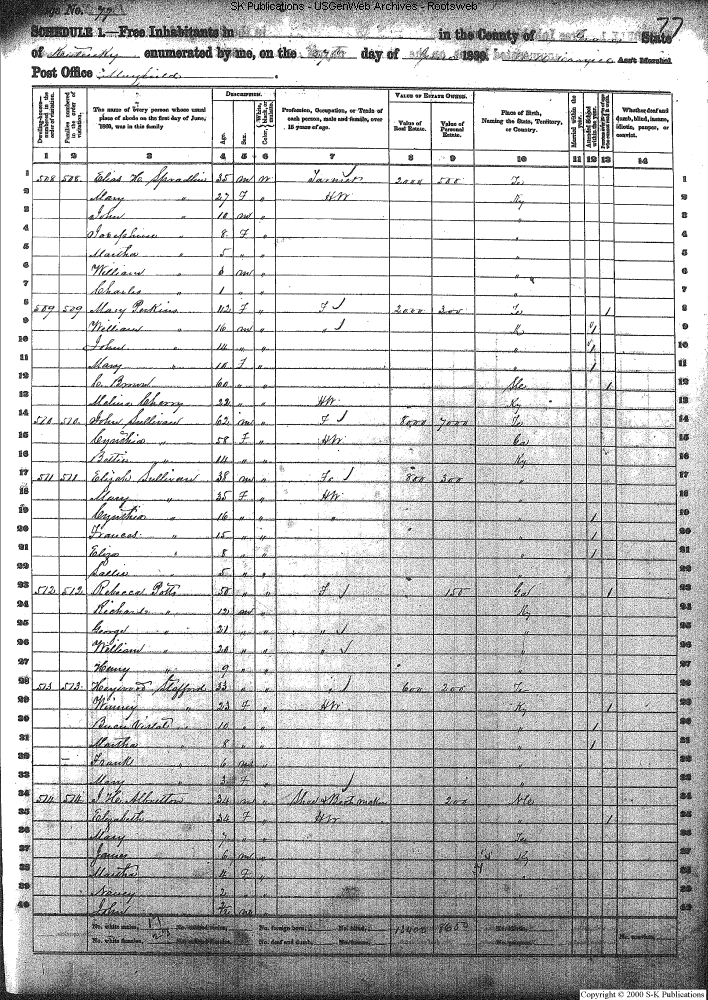 SK Publications - USGenWeb Archives - Rootsweb
Page No. 77
77
SCHEDULE 1.—Free Inhabitants in in the County of State
of Kentucky enumerated by me, on the day of 1860. Ass't Marshal.
Post Office Mayfield
Dwelling-houses—numbered in the order of visitation.
Families numbered in the order of visitation.
The name of every person whose usual place of abode on the first day of June, 1860, was in this family
DESCRIPTION.
Age.
Sex.
Color, White, black, or mulatto.
Profession, Occupation, or Trade of each person, male and female, over 15 years of age.
VALUE OF ESTATE OWNED.
Value of Real Estate.
Value of Personal Estate.
Place of Birth, Naming the State, Territory, or Country.
Married within the year.
Attended School within the year.
Whether deaf and dumb, blind, insane, idiotic, pauper, or convict.
1 2 3 4 5 6 7 8 9 10 11 12 13 14
1 508 508 Elias H. Spradlin 35 m W Farmer 2000 500 Te 1
2 Mary " 27 F " HW Ky 2
3 John " 10 m " " 3
4 Josephine " 8 F " " 4
5 Martha " 5 " " " 5
6 William " 3 m " " 6
7 Charles " 1 " " " 7
8 509 509 Mary Perkins 42 F " F 2000 300 Te 1 8
9 William " 16 m " " K 1 9
10 John " 14 " " " 1 10
11 Mary " 10 F " " 1 11
12 C. Brown 60 " " 1 12
13 Melina Cherry 22 " " HW Ky 13
14 510 510 John Sullivan 62 m " F 8000 7000 Te 14
15 Cynthia " 58 F " HW 15
16 " 14 " " Ky 16
17 511 511 Elijah Sullivan 38 m " Fr 800 300 " 17
18 Mary " 35 F " HW " 18
19 Cynthia " 16 " " " " 1 19
20 Frances " 15 " " " 1 20
21 Eliza " 8 " " " 1 21
22 Sallie 5 " " " 22
23 512 512 Rebecca Potts 50 " " F 150 Ga 1 23
24 Richard " 12 m " Ky 24
25 George " 21 " " " " 25
26 William " 20 " " " " 26
27 Henry " 9 " " " 27
28 513 513 Heywood Stafford 33 " " " 600 200 Te 28
29 Winney " 23 F " HW Ky 1 29
30 Buen Vista " 10 " " " 1 30
31 Martha " 8 " " " 1 31
32 Frank " 6 m " " 32
33 Mary " 3 F " " 33
34 514 514 J. H. Albritton 34 m " Shoe & Boot maker 200 NC 34
35 Elizabeth " 34 F " HW " 1 35
36 Mary " 7 " " Te 36
37 James " 6 m " Ky 37
38 Martha " 4 F " " 38
39 Nancy " 2 " " " 39
40 John " m " " 40
No. white males, 17 No. colored males, No. foreign born, No. blind, 13400
No. white females, 23 No. colored females, No. deaf and dumb, No. insane,
Copyright © 2000 S-K Publications